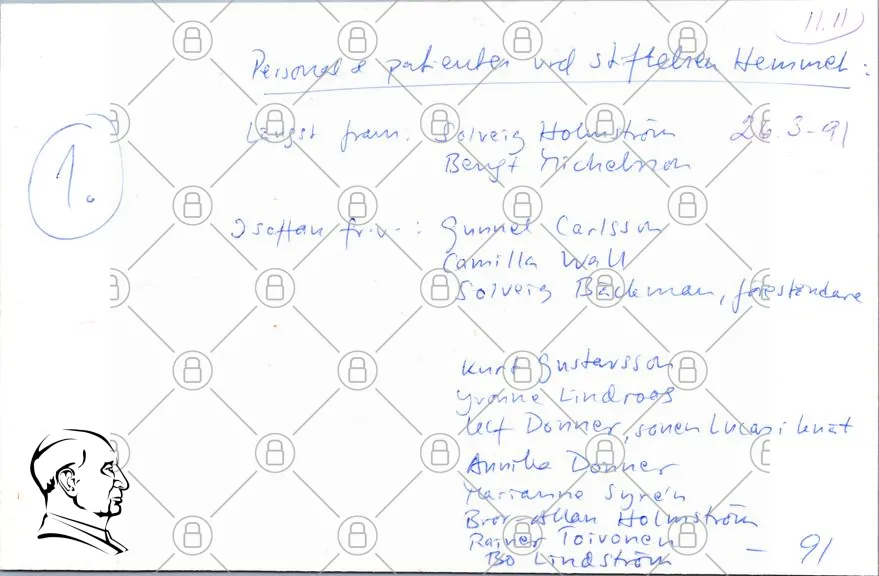 11.11
Personal & patienter vid stiftelsen Hemmet:
Längst fram: Solveig Holmström 26.3-91
Bengt Michelsson
1.
I soffan fr.v.: Gunnel Carlsson
Camilla Wall
Solveig Bäckman, föreståndare
Kurt Gustavsson
Yvonne Lindroos
Leif Donner, sonen Lucas i knät
Annika Donner
Marianne Syrén
Bror-Allan Holmström
Rainer Toivonen
Bo Lindström - 91